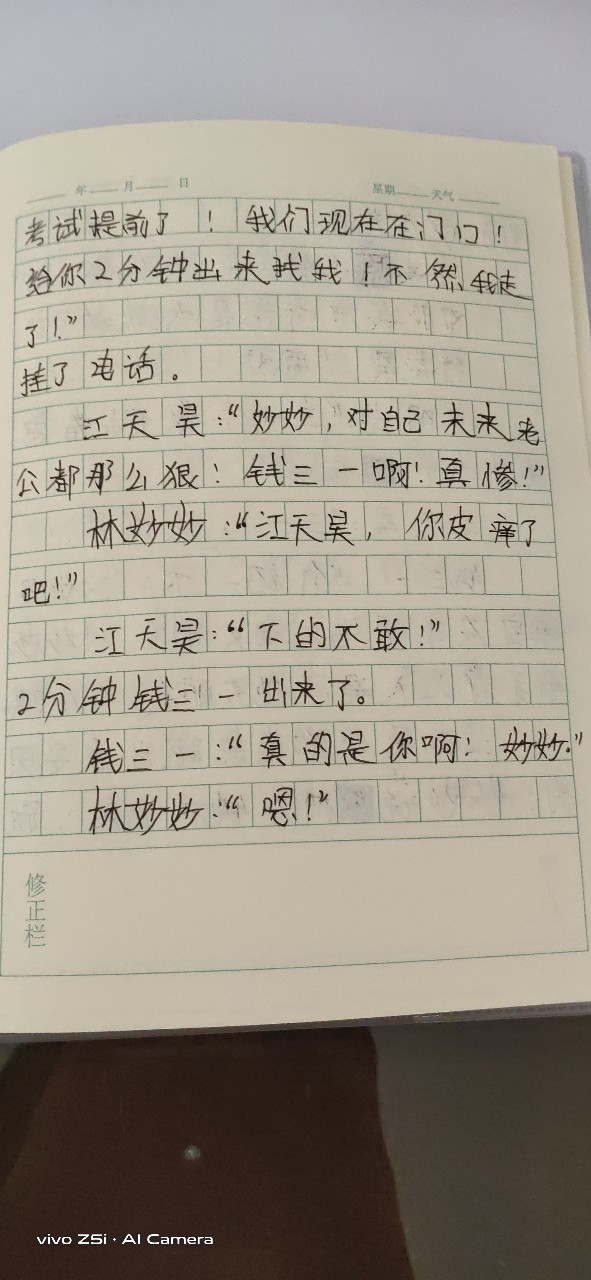 年 月 日 星期 天气
考试提前了！我们现在在门口！
给你2分钟出来找我！不然我走
了！”
挂了电话。
江天昊：“妙妙，对自己未来老
公都那么狠！钱三一啊！真惨！”
林妙妙：“江天昊，你皮痒了
吧！”
江天昊：“下的不敢！”
2分钟钱三一出来了。
钱三一：“真的是你啊！妙妙。”
林妙妙：“嗯！”
修正栏
vivo Z5i · AI Camera